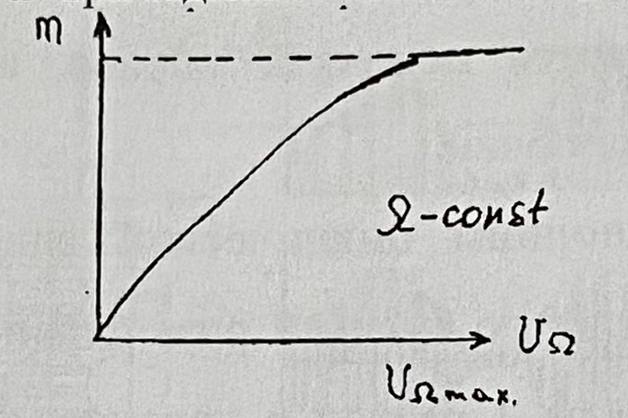 m
Ω-const
UΩ
UΩmax.